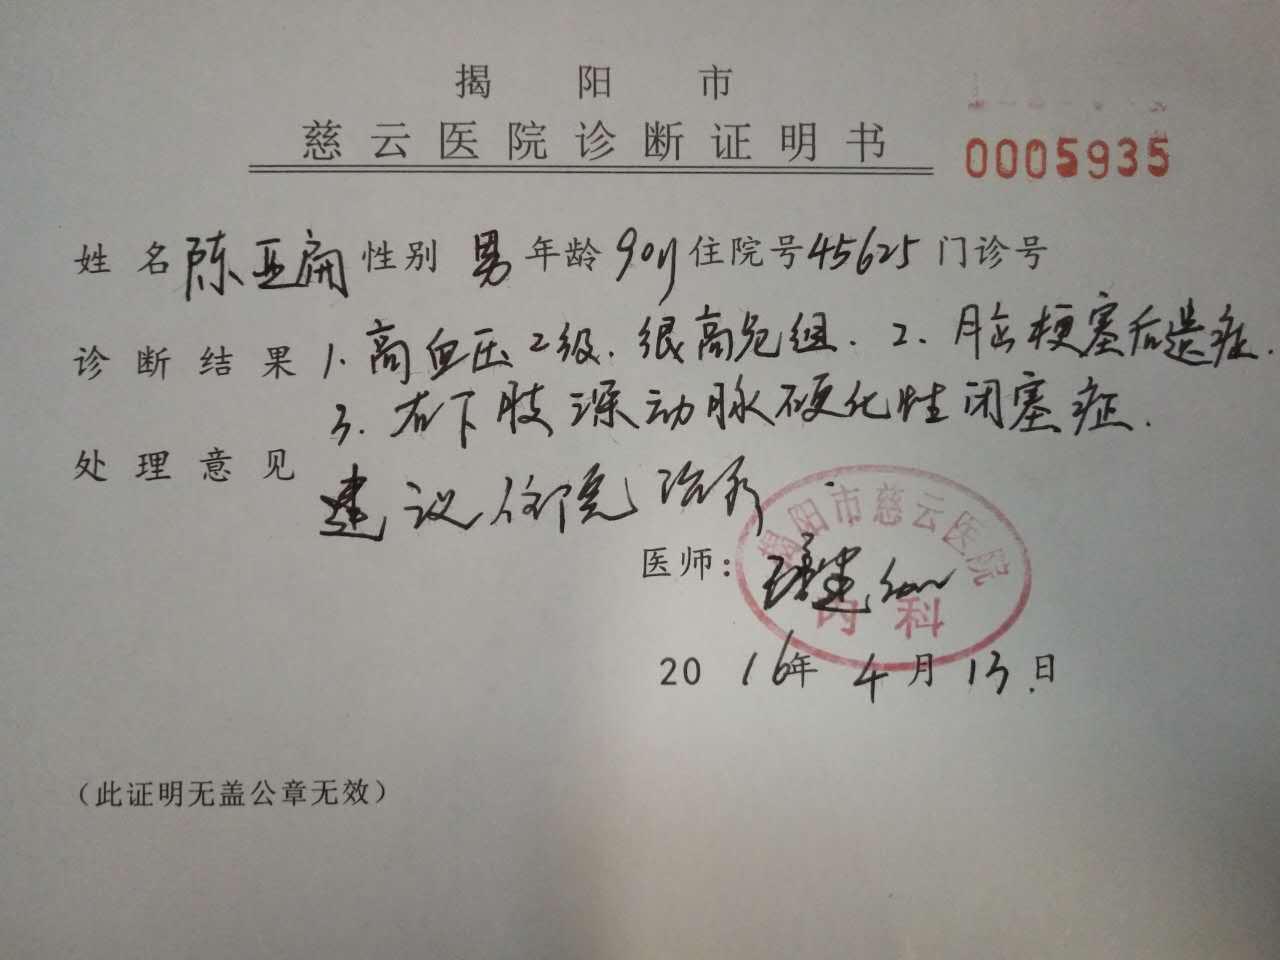 揭阳市
慈云医院诊断证明书
0005935
姓名 陈亚扁 性别 男 年龄 90y 住院号 45625 门诊号
诊断结果 1. 高血压2级. 很高危组. 2. 脑梗塞后遗症.
3. 右下肢深动脉硬化性闭塞症.
处理意见
建议住院治疗
揭阳市慈云医院
医师:
内科
2016年4月13日
(此证明无盖公章无效)